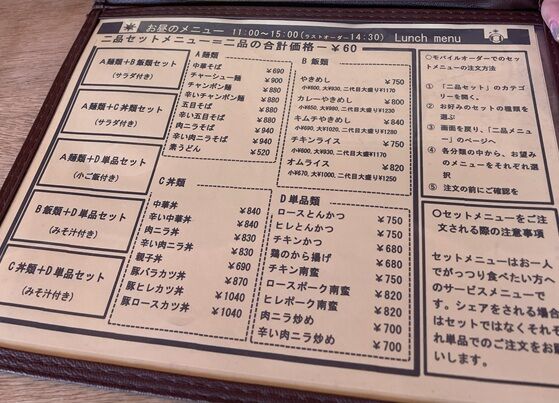 お昼のメニュー 11:00～15:00(ラストオーダー14:30) Lunch menu
二品セットメニュー＝二品の合計価格－¥60
A麺類＋B飯類セット
(サラダ付き)
A麺類＋C丼類セット
(サラダ付き)
A麺類＋D単品セット
(小ご飯付き)
B飯類＋D単品セット
(みそ汁付き)
C丼類＋D単品セット
(みそ汁付き)
A 麺類
中華そば ¥690
チャーシュー麺 ¥900
チャンポン麺 ¥880
辛いチャンポン麺 ¥880
五目そば ¥880
辛い五目そば ¥880
肉ニラそば ¥900
辛い肉ニラそば ¥900
素うどん ¥520
B 飯類
やきめし ¥750
小¥600、大¥930、二代目大盛り¥1170
カレーやきめし ¥800
小¥650、大¥980、二代目大盛り¥1230
キムチやきめし ¥840
小¥690、大¥1020、二代目大盛り¥1280
チキンライス ¥750
小¥600、大¥930、二代目大盛り¥1170
オムライス ¥820
小¥670、大¥1000、二代目大盛り¥1250
C 丼類
中華丼 ¥840
辛い中華丼 ¥840
肉ニラ丼 ¥830
辛い肉ニラ丼 ¥830
親子丼 ¥690
豚バラカツ丼 ¥870
豚ヒレカツ丼 ¥1040
豚ロースカツ丼 ¥1040
D 単品類
ロースとんかつ ¥750
ヒレとんかつ ¥750
チキンかつ ¥680
鶏のから揚げ ¥680
チキン南蛮 ¥750
ロースポーク南蛮 ¥820
ヒレポーク南蛮 ¥820
肉ニラ炒め ¥700
辛い肉ニラ炒め ¥700
〇モバイルオーダーでのセットメニューの注文方法
① 「二品セット」のカテゴリを開く。
② お好みのセットの種類を選ぶ
③ 画面を戻り、「二品メニュー」のページへ
④ 各分類の中から、お望みのメニューをそれぞれ選択
⑤ 注文の前にご確認を
〇セットメニューをご注文される際の注意事項
セットメニューはお一人でがっつり食べたい方へのサービスメニューです。シェアをされる場合はセットではなくそれぞれ単品でのご注文をお願いします。